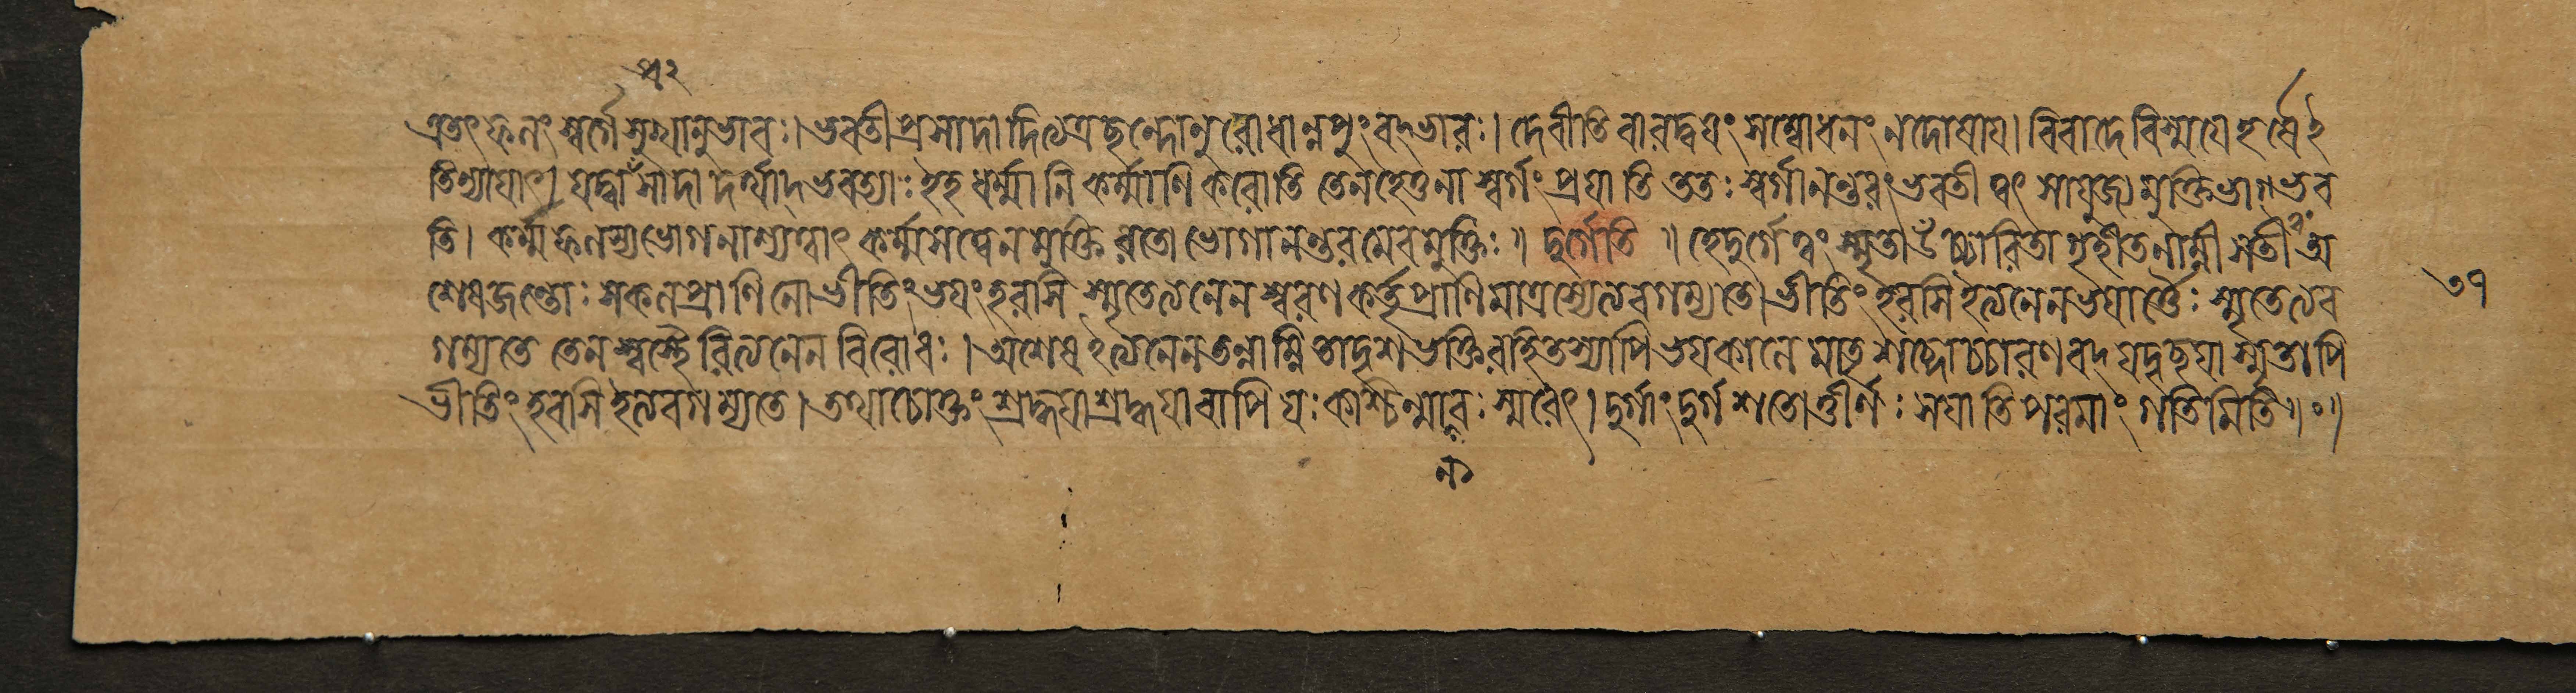 প্র২
এতৎ ফলং স্বর্গে সুখানুভাবঃ। ভবতীপ্রসাদাদিত্যত্র ছন্দোনুরোধান্নপুংবদ্ভাবঃ। দেবীতি বারদ্বয়ং সম্বোধনং নদোষায়। বিবাদে বিস্ময়ে হর্ষেই
তিন্যায়াৎ। যদ্বা প্রসাদাদর্থাদ্ ভবত্যাঃ ইহ ধর্ম্মানি কর্ম্মাণি করোতি তেনহেতুনা স্বর্গং প্রয়াতি ততঃ স্বর্গানন্তরং ভবতী ত্বৎ সাযুজ্য মুক্তিভাগ্ভব
তি। কর্ম্মফলস্য ভোগনাশ্যত্বাৎ কর্ম্মসত্বেনমুক্তি রতো ভোগানন্তরমেবমুক্তিঃ॥ দুর্গেতি ॥ হেদুর্গে ত্বং স্মৃতা উচ্চারিতা গৃহীতনাম্নী সতী অ
শেষজন্তোঃ সকলপ্রাণিনো ভীতিং ভয়ং হরসি স্মৃতেত্যনেন স্মরণ কর্তৃপ্রাণিমাত্রস্যেত্যবগম্যতে। ভীতিং হরসি ইত্যনেন ভয়ার্ত্তৈঃ স্মৃতেত্যব
গম্যতে তেন স্বস্থৈরিত্যনেন বিরোধঃ। অশেষ ইত্যনেন তন্নাম্নি তাদৃশ ভক্তিরহিতস্যাপি ভয়কালে মাতৃশব্দোচ্চারণবদ্ যদৃচ্ছয়া স্মৃতাপি
ভীতিং হরসি ইত্যবগম্যতে। তথাচোক্তং শ্রদ্ধয়াশ্রদ্ধয়া বাপি যঃ কশ্চিন্মানবঃ স্মরেৎ। দুর্গাং দুর্গশতোত্তীর্ণঃ সয়াতি পরমাং গতিমিতি॥০॥
ন
৩৭